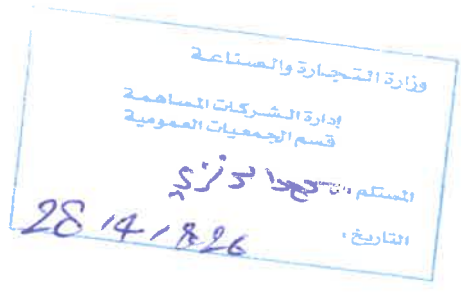 وزارة التجارة والصناعة
إدارة الشركات المساهمة
قسم الجمعيات العمومية
المستلم :
التاريخ :
28/4/